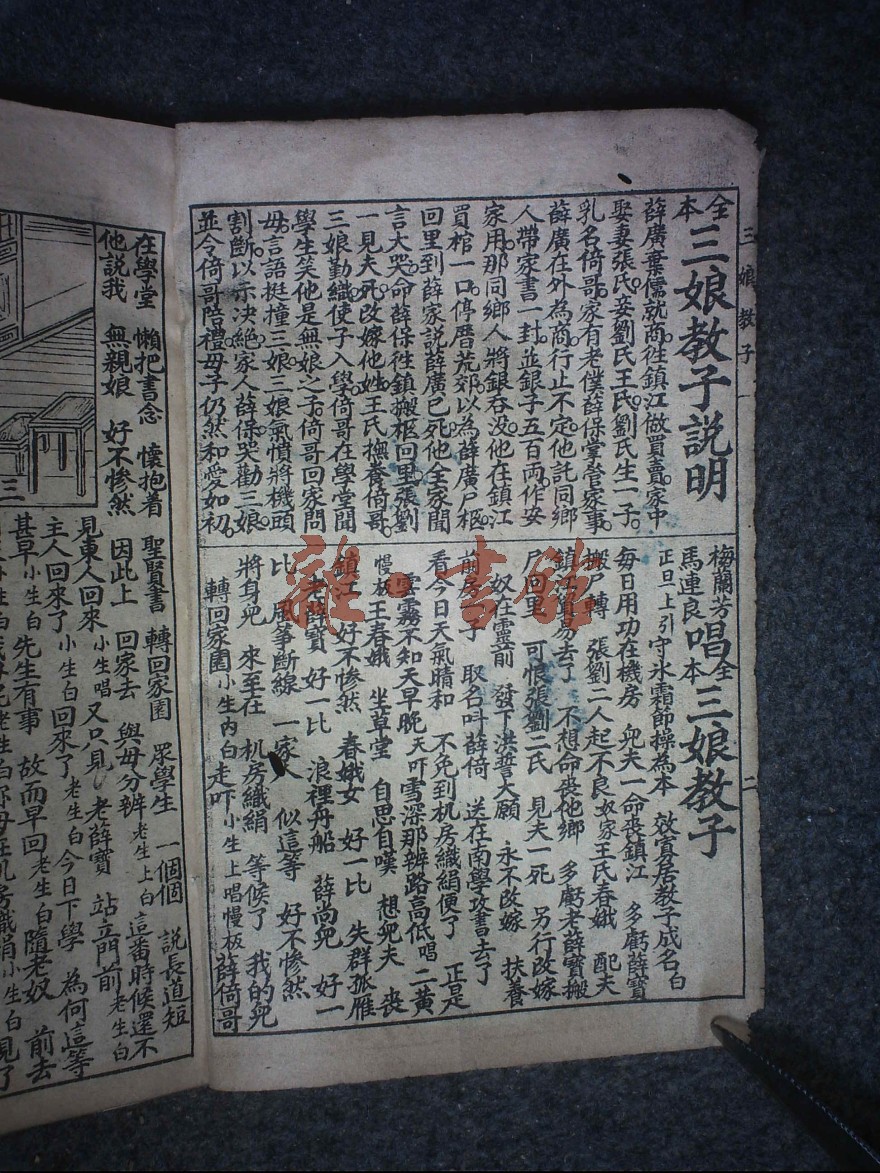 三娘教子
二
全本三娘教子說明
薛廣棄儒就商徃鎮江做買賣家中
娶妻張氏妾劉氏王氏劉氏生一子
乳名倚哥家有老僕薛保掌管家事
薛廣在外為商行止不定他託同鄉
人帶家書一封並銀子五百両作安
家用那同鄉人將銀吞没他在鎮江
買棺一口停厝荒郊以為薛廣尸柩
回里到薛家説薛廣已死他全家聞
言大哭命薛保徃鎮搬柩回里張劉
一見夫死改嫁他姓王氏撫養倚哥
三娘勤織使子入學倚哥在學堂聞
學生笑他是無娘之子倚哥回家問
毋言語挺撞三娘三娘氣憤將機頭
割斷以示決絶家人薛保哭勸三娘
並令倚哥陪禮母子仍然和愛如初
梅蘭芳馬連良唱全本三娘教子
正旦上引守氷霜節操為本 效竇居教子成名白
每日用功在機房 兒夫一命喪鎮江 多虧薛寶
搬尸轉 張劉二人起不良奴家王氏春娥 配夫
鎮江貿易去了 不想命喪他鄉 多虧老薛寶搬
尸回里 可恨張劉二氏 見夫一死 另行改嫁
奴在靈前 發下洪誓大願 永不改嫁 扶養
前房之子 取名呌薛倚 送在南學攻書去了
看今日天氣晴和 不免到机房織絹便了 正是
雲霧不知天早晚 天吓雪深那辨路高低唱 二黄
慢板王春娥 坐草堂 自思自嘆 想兒夫 喪
鎮江 好不惨然 春娥女 好一比 失群孤雁
老薛寶 好一比 浪裡舟船 薛尚兒 好一
比 風筝斷線 一家人 似這等 好不惨然
將身兒 來至在 机房織絹 等候了 我的兒
轉回家園小生内白走吓小生上唱慢板薛倚哥
在學堂 懶把書念 懷抱着 聖賢書 轉回家園 眾學生 一個個 説長道短
他説我 無親娘 好不惨然 因此上 回家去 與母分辨老生上白這番時候還不
見東人回來小生唱又只見 老薛寶 站立門前老生白
主人回來了小生白回來了老生白今日下學 為何這等
甚早小生白先生有事 故而早回老生白隨老奴 前去
三
雜·書館